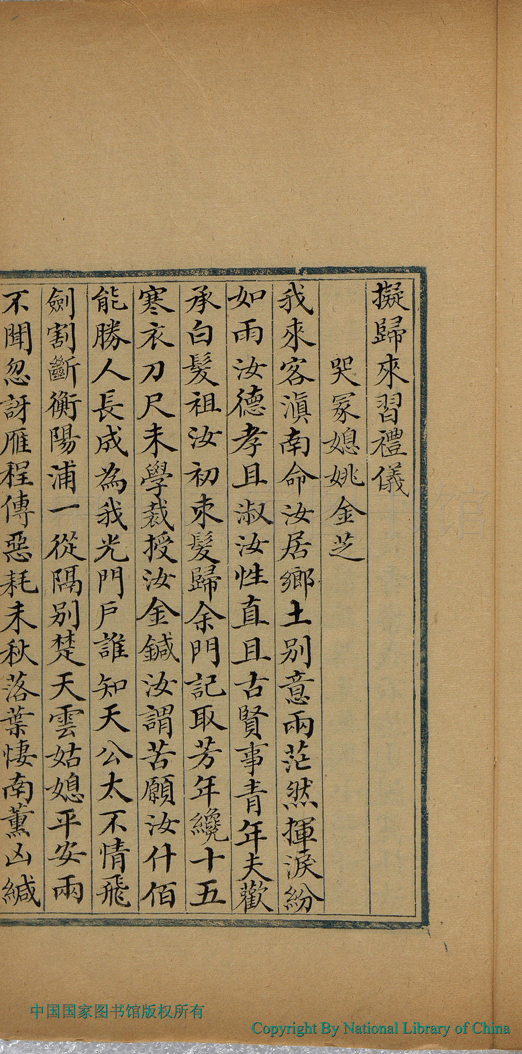 擬歸來習禮儀
哭冢媳姚金芝
我來客滇南命汝居鄉土別意兩茫然揮淚紛
如雨汝德孝且淑汝性直且古賢事青年夫歡
承白髮祖汝初束髮歸余門記取芳年纔十五
寒衣刀尺未學裁授汝金鍼汝謂苦願汝什佰
能勝人長成為我光門戶誰知天公太不情飛
劍割斷衡陽浦一從隔別楚天雲姑媳平安兩
不聞忽訝雁程傳惡耗未秋落葉悽南薰凶緘
中国国家图书馆版权所有
Copyright By National Library of China